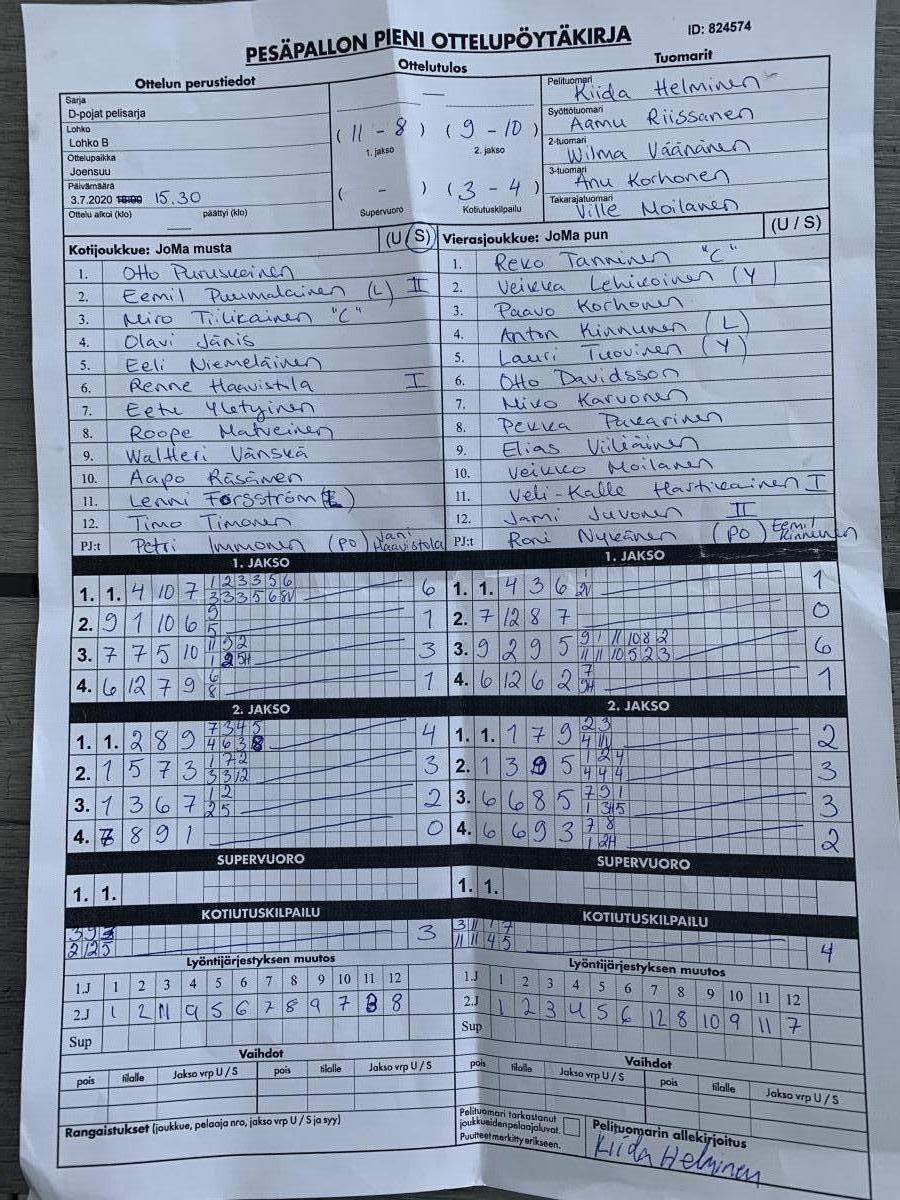 PESÄPALLON PIENI OTTELUPÖYTÄKIRJA
ID: 824574
Ottelun perustiedot
Ottelutulos
Tuomarit
Sarja
D-pojat pelisarja
Lohko
Lohko B
Ottelupaikka
Joensuu
Päivämäärä
3.7.2020 15.30
Ottelu alkoi (klo) päättyi (klo)
( 11 - 8 ) ( 9 - 10 )
1. jakso 2. jakso
( - ) ( 3 - 4 )
Supervuoro Kotiutuskilpailu
Pelituomari
Kiida Helminen
Syöttötuomari
Aamu Riissanen
2-tuomari
Wilma Väänänen
3-tuomari
Anu Korhonen
Takarajatuomari
Ville Moilanen
Kotijoukkue: JoMa musta (U / S)
1. Otto Puruskainen
2. Eemil Puumalainen (L) II
3. Miro Tiilikainen "C"
4. Olavi Jänis
5. Eeli Niemeläinen
6. Renne Haavistola I
7. Eetu Yletyinen
8. Roope Matveinen
9. Waltteri Vänskä
10. Aapo Räsänen
11. Lenni Forsström (L)
12. Timo Timonen
PJ:t Petri Immonen (PO) Jani Haavistola
Vierasjoukkue: JoMa pun (U / S)
1. Reko Tanninen "C"
2. Veikka Lehikoinen (Y)
3. Paavo Korhonen
4. Anton Kinnunen (L)
5. Lauri Tuovinen (Y)
6. Otto Davidsson
7. Niko Karvonen
8. Pekka Pakarinen
9. Elias Viiliäinen
10. Veikko Moilanen
11. Veli-Kalle Hartikainen I
12. Jami Juvonen II
PJ:t Roni Nykänen (PO) Eemil Kinnunen
1. JAKSO
1. 1. 4 10 7 1 2 3 3 5 6 6
3 3 3 5 6 8V
2. 9 1 10 6 9 1
5
3. 7 7 5 10 11 9 2 3
1 2 5H
4. 6 12 7 9 6 1
8
1. JAKSO
1. 1. 4 3 6 1 1
2V
2. 7 12 8 7 0
3. 9 2 9 5 9 1 11 10 8 2 6
11 11 10 5 2 3
4. 6 12 6 2 7 1
9H
2. JAKSO
1. 1. 2 8 9 7 3 4 5 4
4 6 3 8
2. 1 5 7 3 1 7 2 3
3 3 12
3. 1 3 6 7 1 2 2
2 5
4. 8 9 1 0
2. JAKSO
1. 1. 1 7 9 2 3 2
4 11
2. 1 3 9 5 1 2 4 3
4 4 4
3. 6 6 8 5 7 9 1 3
1 3 4 5
4. 6 6 9 3 7 8 2
1 2H
SUPERVUORO
1. 1.
SUPERVUORO
1. 1.
KOTIUTUSKILPAILU
3 9 3 3
2 12 5
KOTIUTUSKILPAILU
3 11 1 7 4
11 11 4 5
Lyöntijärjestyksen muutos
1.J 1 2 3 4 5 6 7 8 9 10 11 12
2.J 1 2 11 9 5 6 7 8 9 7 3 8
Sup
Lyöntijärjestyksen muutos
1.J 1 2 3 4 5 6 7 8 9 10 11 12
2.J 1 2 3 4 5 6 12 8 10 9 11 7
Sup
Vaihdot
pois tilalle Jakso vrp U / S pois tilalle Jakso vrp U / S
Vaihdot
pois tilalle Jakso vrp U / S pois tilalle Jakso vrp U / S
Rangaistukset (joukkue, pelaaja nro, jakso vrp U / S ja syy)
Pelituomari tarkastanut
joukkueidenpelaajaluvat.
Puutteet merkitty erikseen.
Pelituomarin allekirjoitus
Kiida Helminen